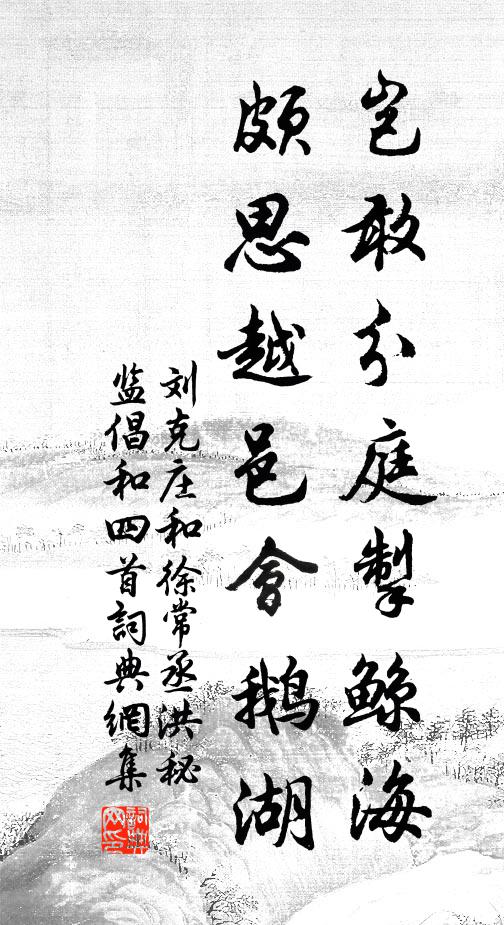 岂敢分庭掣鲸海
頗思越邑會鵝湖
刘克庄和徐常丞洪秘
监倡和四首詞典網集